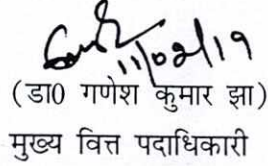 11/02/19
(डा0 गणेश कुमार झा)
मुख्य वित्त पदाधिकारी